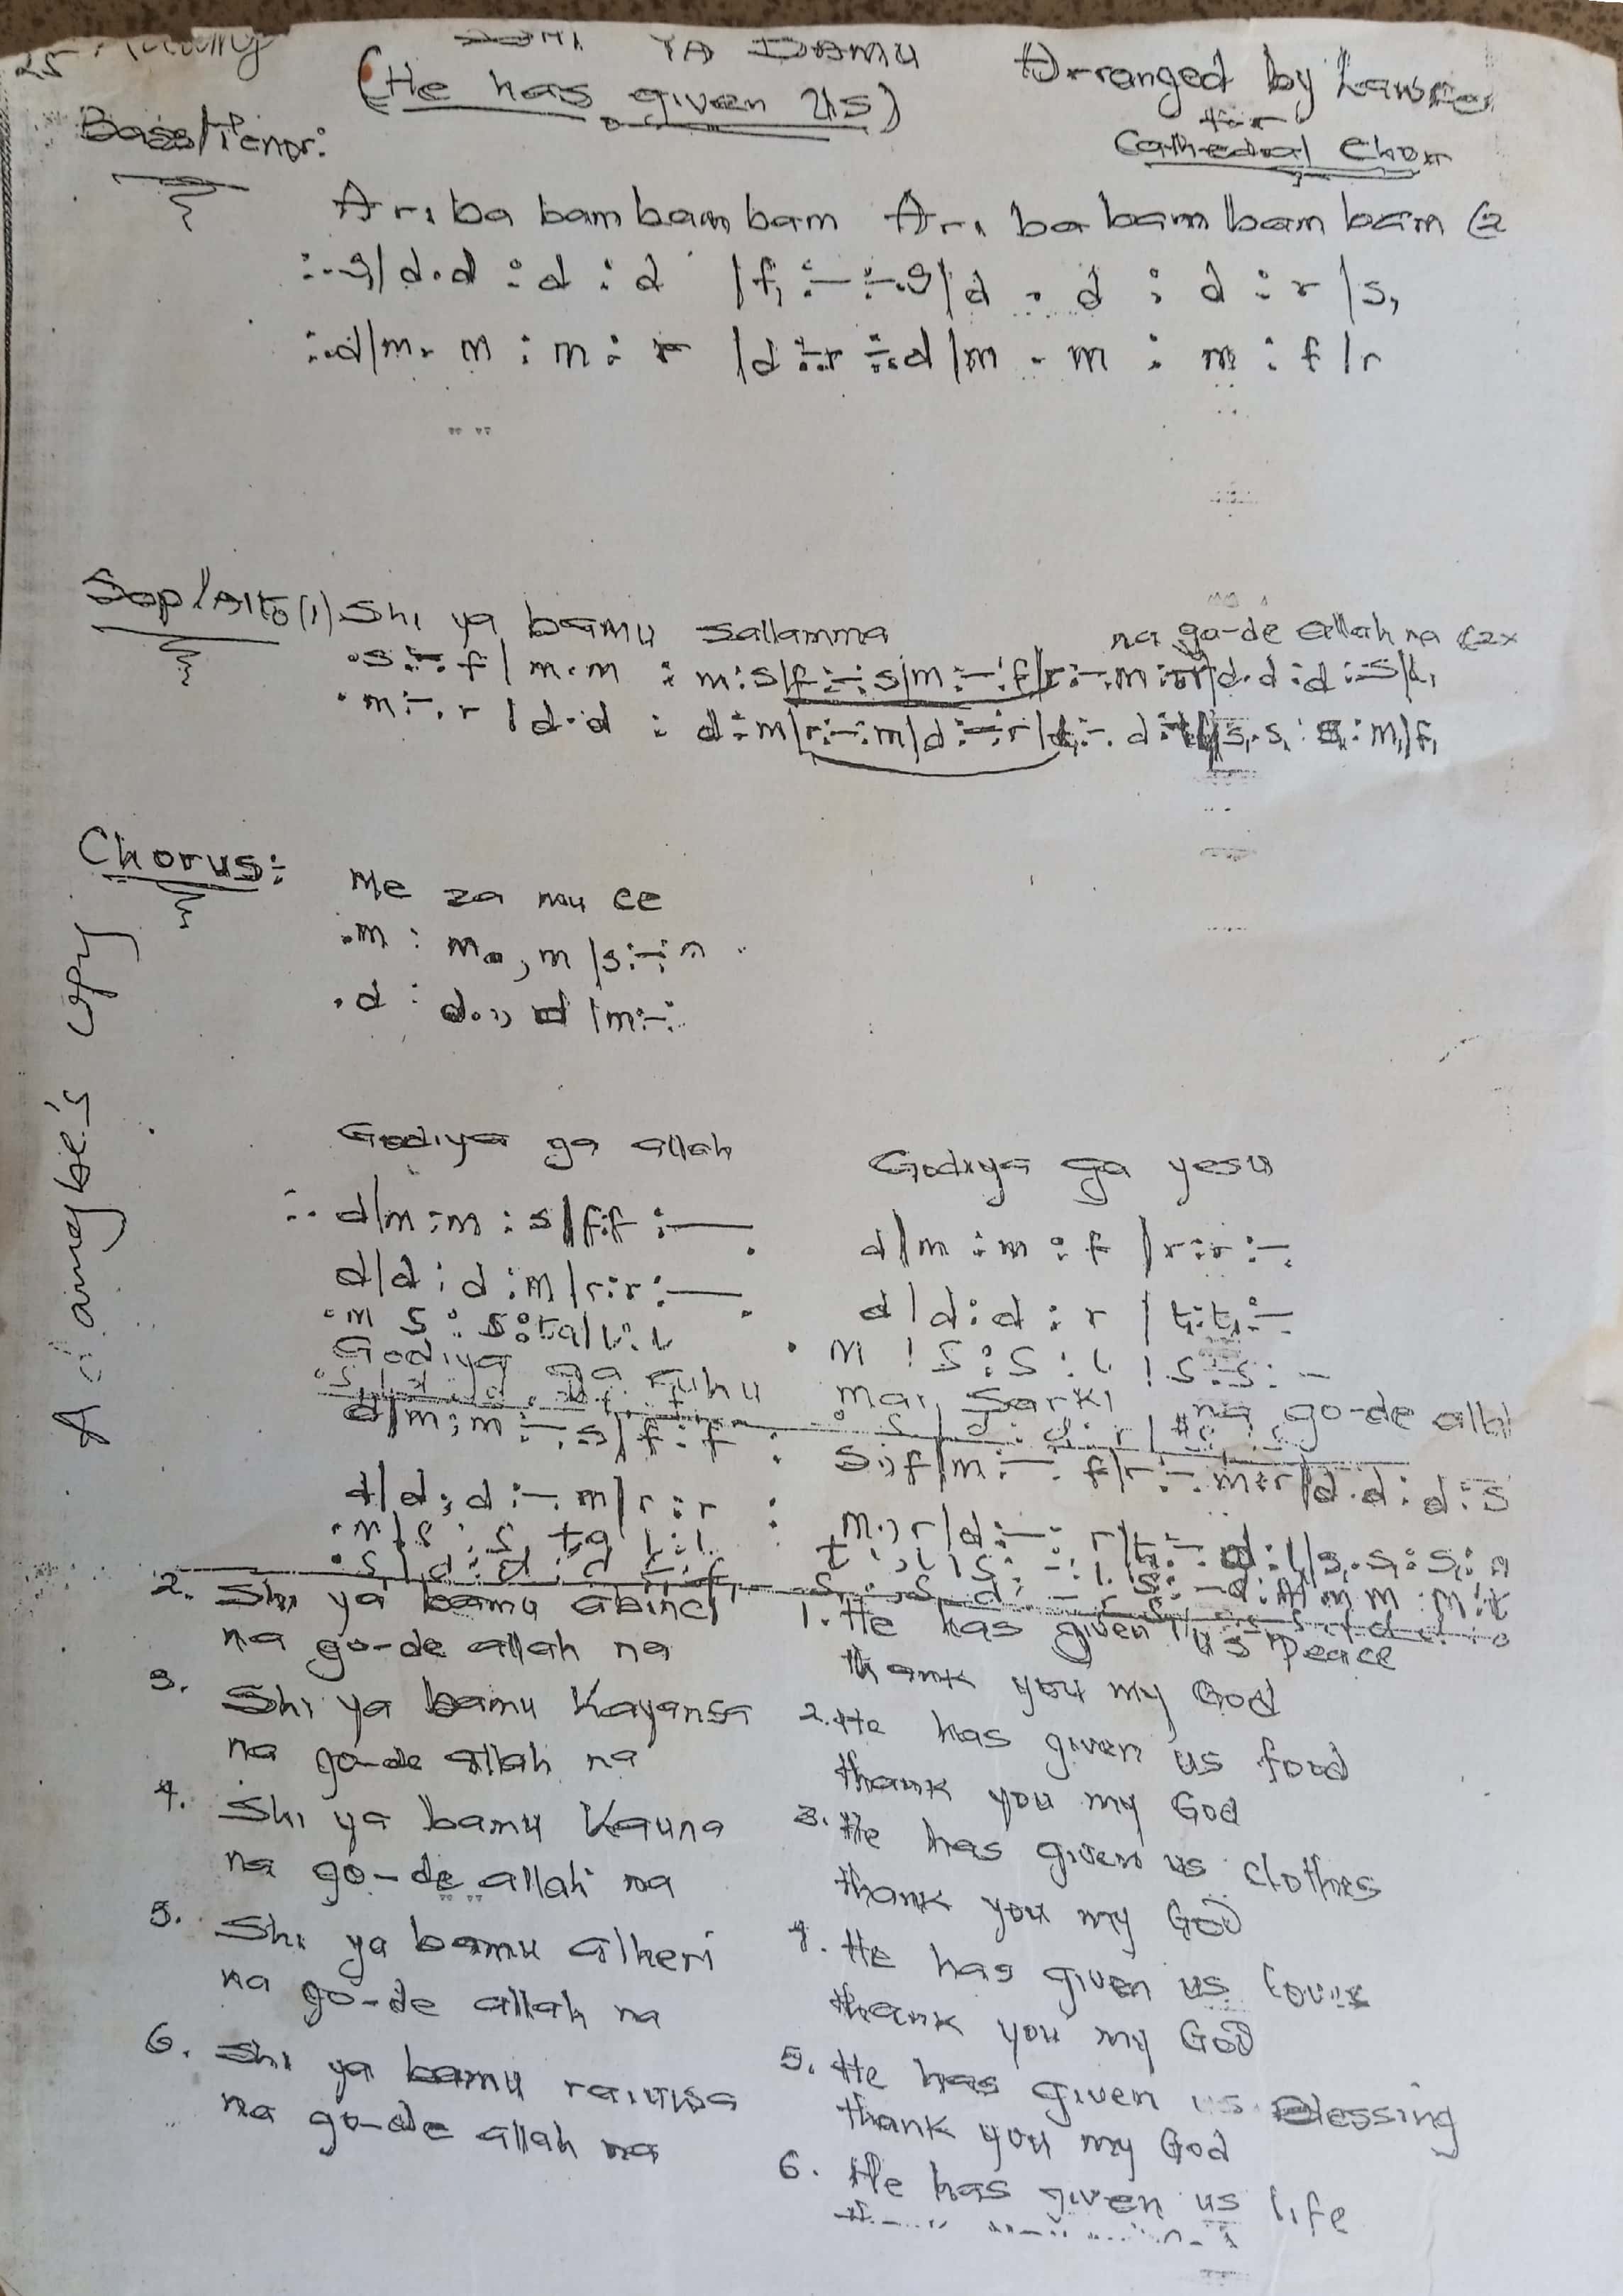 25
YA BAMU
(He has given us)
Arranged by
for
Cathedral Choir
Bass/Tenor:
Ari ba bam bam bam Ari ba bam bam bam (2
:.s,|d.d :d :d |f, :— :-.s,|d . d : d : r |s,
:.d|m. m : m : r |d :-.r :-.d|m . m : m : f |r
Sop/Alto (1) Shi ya bamu sallamma na go-de allah na (2x
.s :-. f | m.m : m:s|f:-:s|m:-:f|r:-.m:r|d.d:d:s|l,
.m :-. r | d.d : d:m|r:-:m|d:-:r|t,:-.d:l,|s,.s,:s,:m,|f,
Chorus:-
Me za mu ce
.m : m.,m |s:-:
.d : d.,d |m:-:
Godiya ga allah Godiya ga yesu
:. d|m:m :s|f:f :— d|m :m :f |r:r :-
d|d:d :m|r:r :— d|d:d : r |t,:t,:-
.m s : s:ta|l:l . m | s:s : l | s:s: -
Godiya ga ruhu mai sarki na go-de allah
d|m:m :-.s|f:f : s.,f|m:-: f|r:-.m:r|d.d:d:s
d|d:d :-.m|r:r : m.,r|d:-: r|t,:-.d:l,|s,.s,:s,:m
A. Adamegbe's copy
2. Shi ya bamu abinci
na go-de allah na
3. Shi ya bamu Kayansa
na go-de allah na
4. Shi ya bamu Kauna
na go-de allah na
5. Shi ya bamu alheri
na go-de allah na
6. Shi ya bamu raiuwsa
na go-de allah na
1. He has given us peace
thank you my God
2. He has given us food
thank you my God
3. He has given us clothes
thank you my God
4. He has given us love
thank you my God
5. He has given us Blessing
thank you my God
6. He has given us life